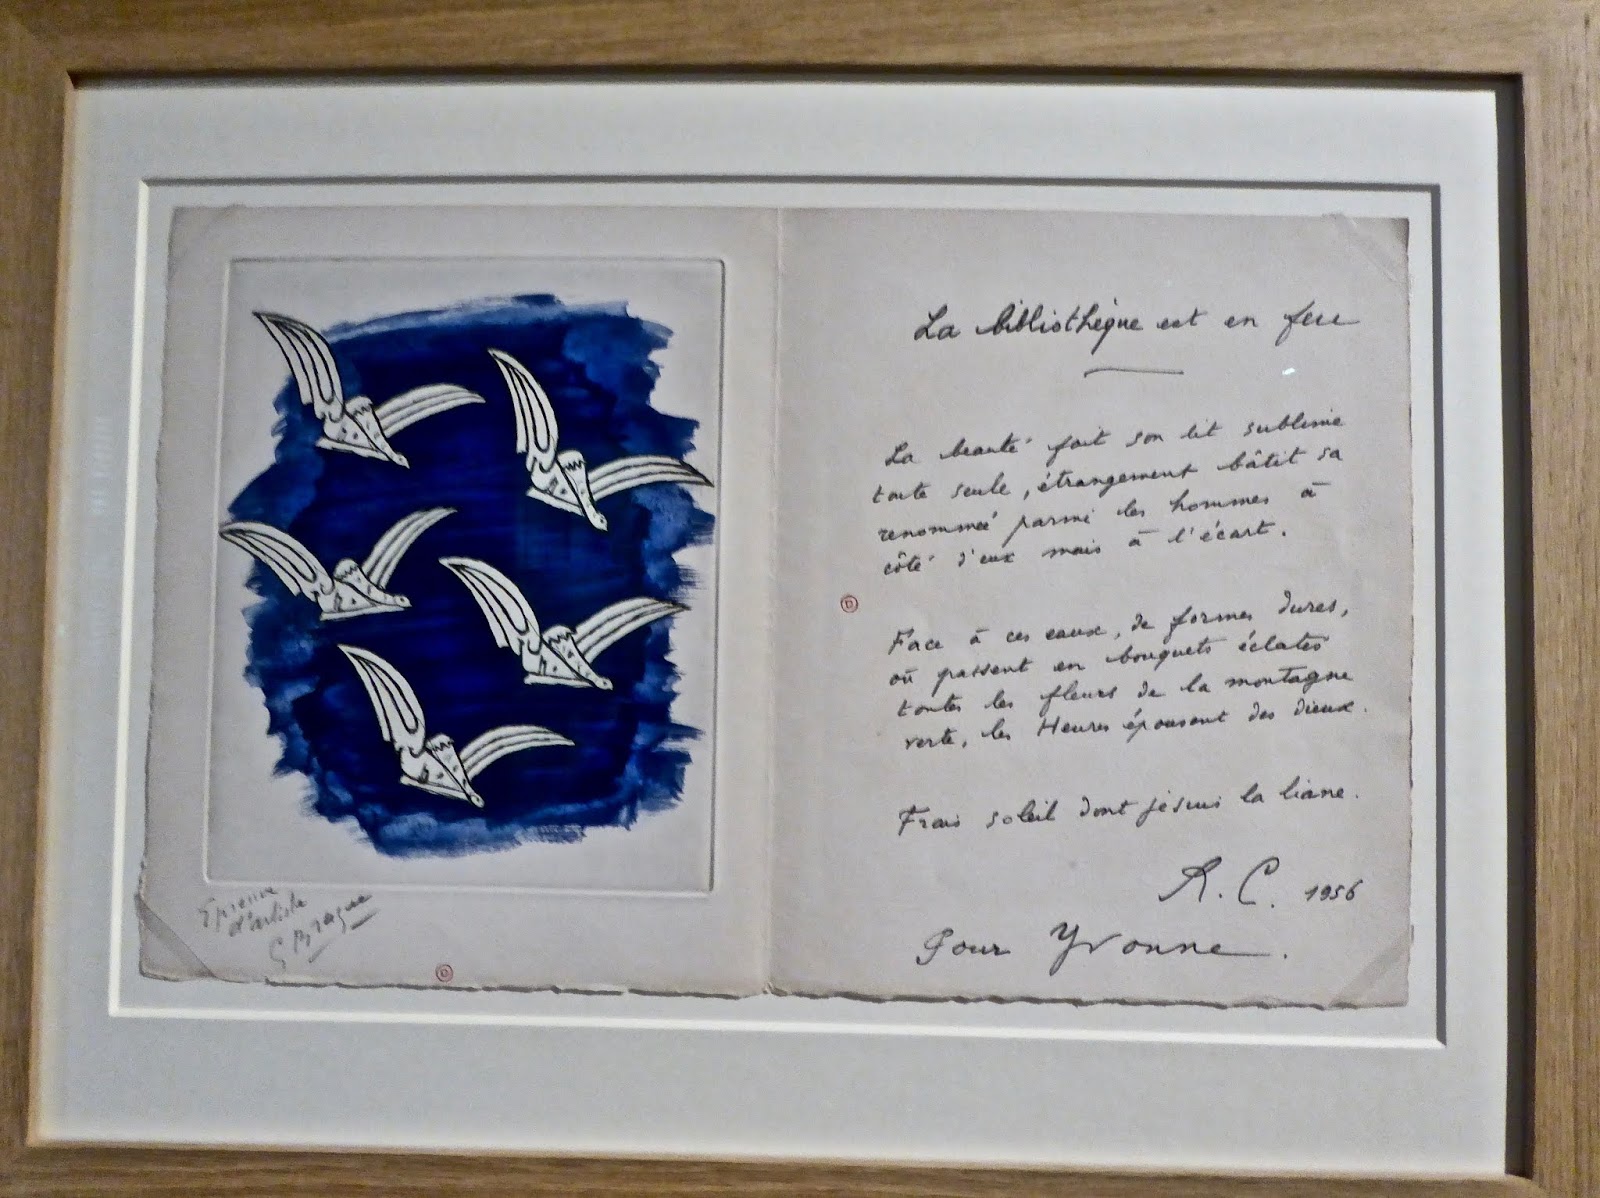 La bibliothèque est en feu
La beauté fait son lit sublime
toute seule, étrangement bâtit sa
renommée parmi les hommes à
côté d'eux mais à l'écart.
Face à ces eaux, de formes dures,
où passent en bouquets éclatés
toutes les fleurs de la montagne
verte, les Heures épousent des dieux.
Frais soleil dont je suis la liane.
R. C. 1956
Pour Yvonne.
Epreuve
d'artiste
G Braque
D
D